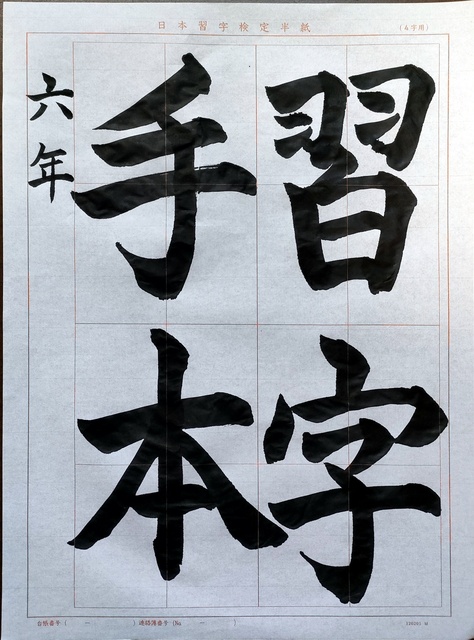 日本習字検定半紙
(4字用)
習字
手本
六年
台帳番号 ( - ) 連絡簿番号 (No. - )